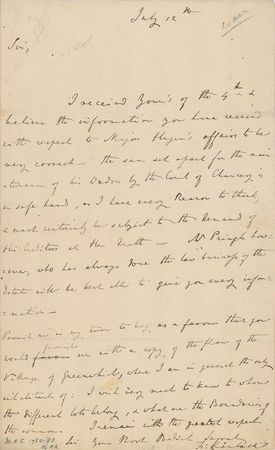 July 12th
Sir,
I received Your's of the 4th &
believe the information you have received
with respect to Major Hogan's affairs to be
very correct the sum set apart for the main
-tenance of his Widow by the Court of Chancery is
in safe hands, as I have every Reason to think,
& must certainly be subject to the Demand of
His Creditors at Her Death — Mr Pringle how-
-ever, who has always done the law business of the
Estate will be best able to give you every infor-
-mation —
Permit me in my turn to beg as a favour that you
would furnish me with a copy of the plan of the
Village of Greenwich, where I am in general the only
inhabitant of: I will very need to know to whom
the different lots belong, & what are the Boundaries of
the common. I remain with the greatest respect
Sir Your Most Obedient Servant